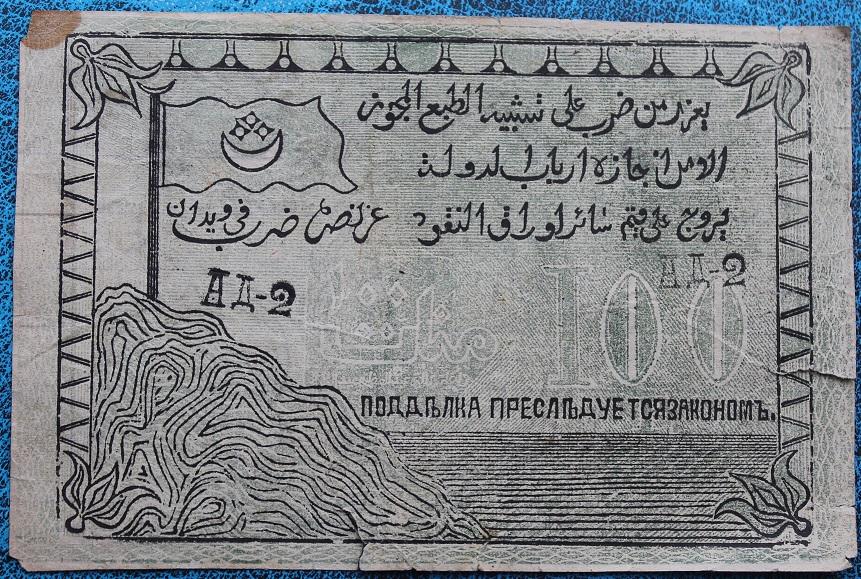 يعزر من ضرب على تشبيه الطبع المجوز
الامن اجازه ارباب الدولة
يروج على قيم سائر اوراق النقود
عز نصره ضرب في ويدان
АД-2
АД-2
منات
100
ПОДДѢЛКА ПРЕСЛѢДУЕТСЯ ЗАКОНОМЪ.